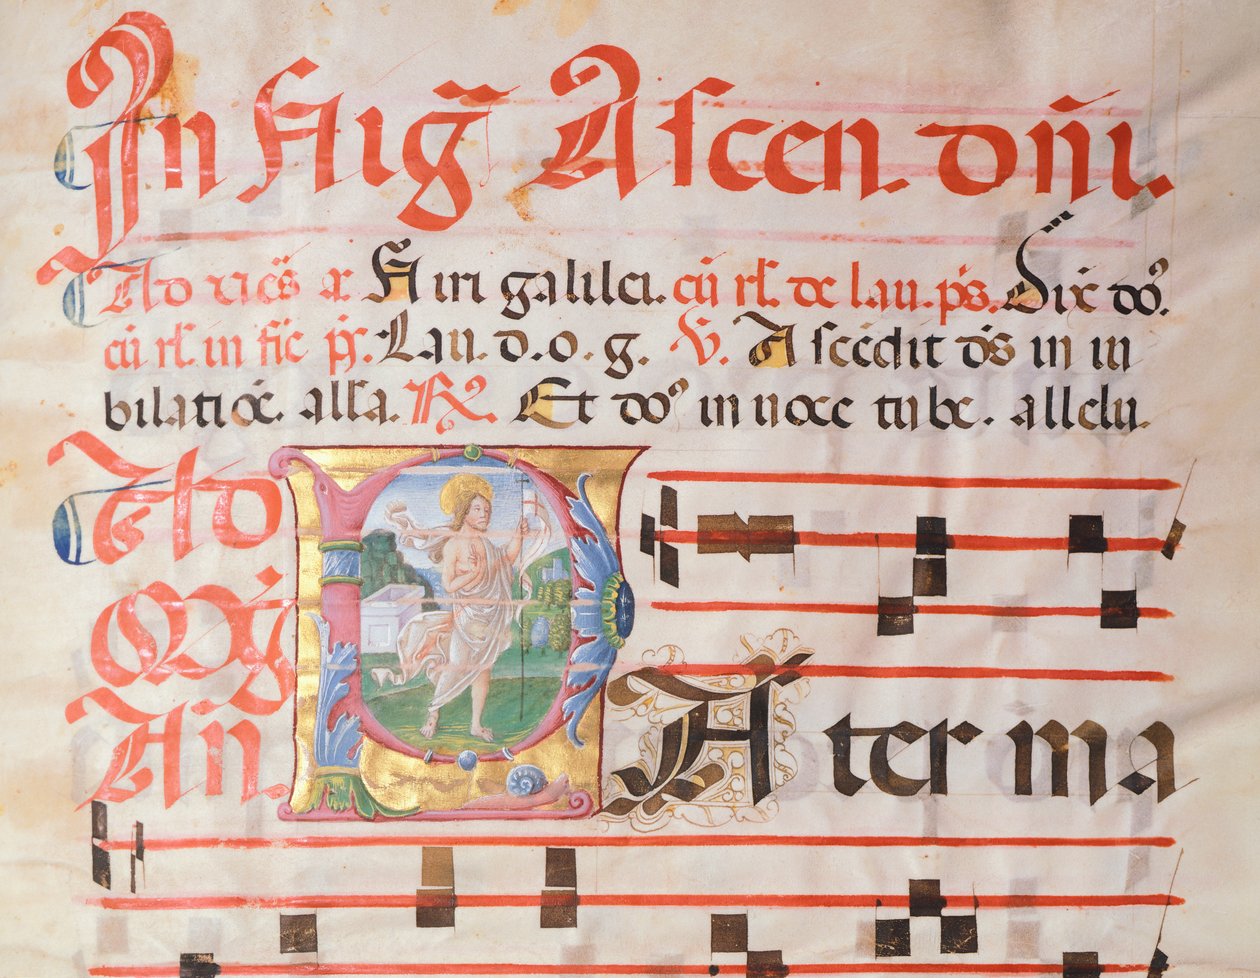 In Uig̃ Ascen. dñi.
Ad uiẽs ar̃ Uiri galilei. cũ rl̃. de lau. p̃s. Dix̃ doꝰ.
cũ rl̃. in fiẽ pꝭ. Lau. d. o. g. ℣. Ascẽdit dẽs in iu
bilatiõe. alła. ℞ Et doꝰ in uoce tube. allelu.
Ad
Mg̃
Añ. PAter ma